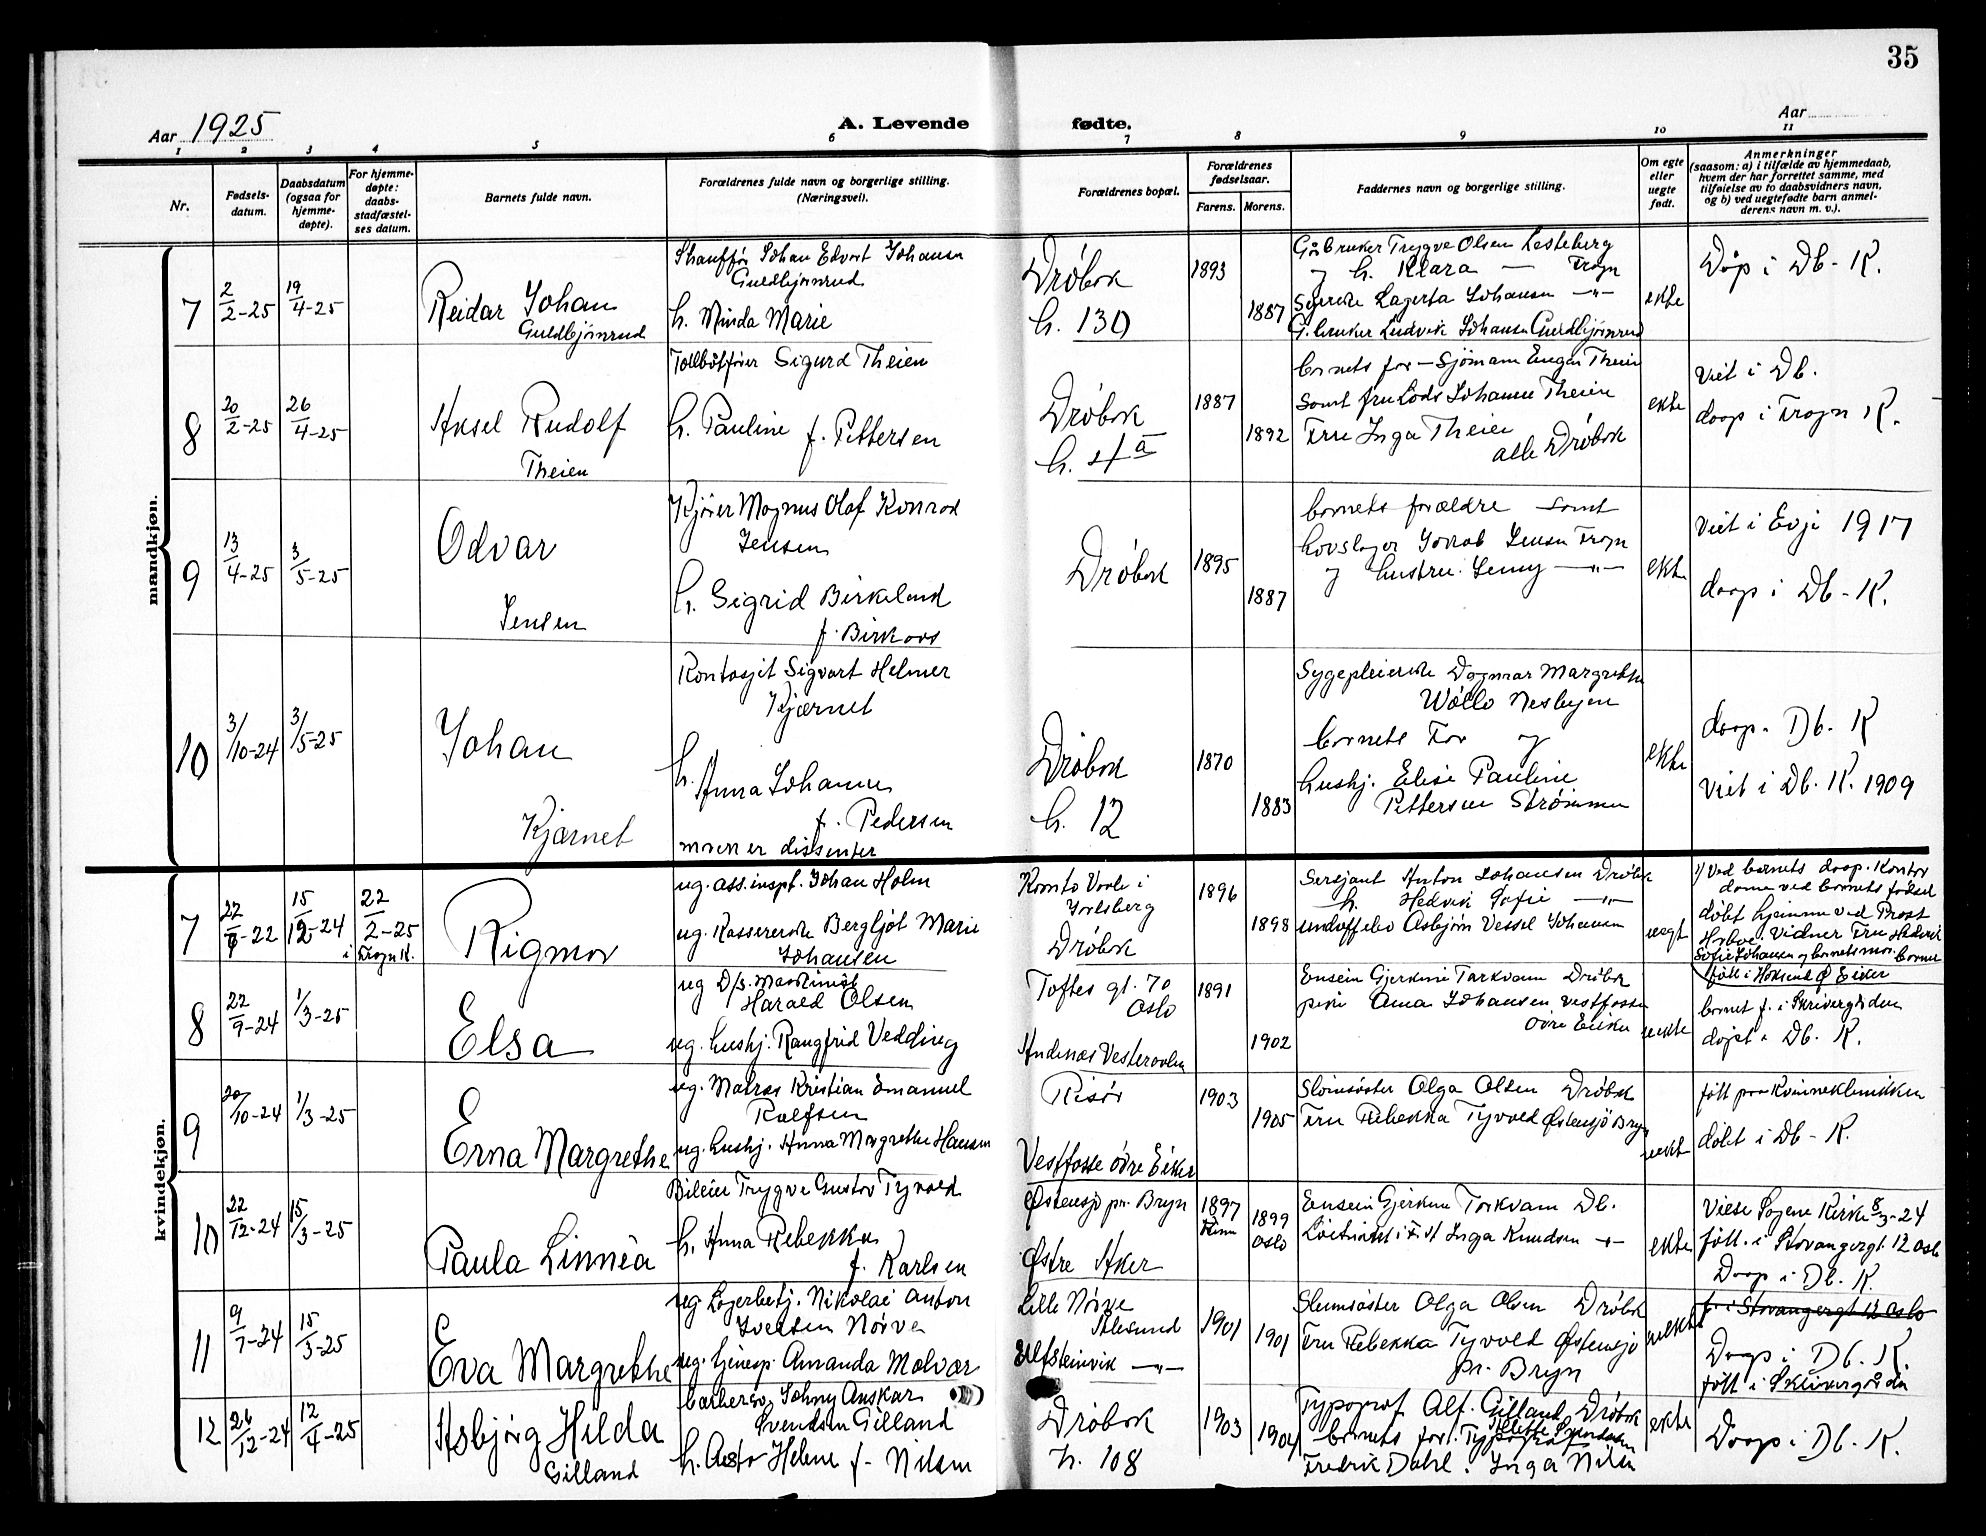 35
Aar 1925
A. Levende fødte.
Aar
1 2 3 4 5 6 7 8 9 10 11
Nr.
Fødsels-
datum.
Daabsdatum
(ogsaa for
hjemme-
døpte).
For hjemme-
døpte:
daabs-
stadfæstel-
ses datum.
Barnets fulde navn.
Forældrenes fulde navn og borgerlige stilling.
(Næringsvei).
Forældrenes bopæl.
Forældrenes
fødselsaar.
Farens. Morens.
Faddernes navn og borgerlige stilling.
Om egte
eller
uegte
født.
Anmerkninger
(saasom: a) i tilfælde av hjemmedaab,
hvem der har forrettet samme, med
tilføielse av to daabsvidners navn,
og b) ved uegtefødte barn anmel-
derens navn m. v.).
mandkjøn.
7
2/2-25
19/4-25
Reidar Johan
Guldbjørnrud
Johan Edvart Johansen
Guldbjørnrud
h. Minda Marie
Drøbak
h. 130
1893
1887
Gåbruker Trygve Olsen Lesteberg
og h. Klara — Frogn
Lagerta Johansen — " —
G. bruker Ludvik Johansen Guldbjørnrud
ekte
Døp i Db - K.
8
20/2-25
26/4-25
Aksel Rudolf
Theien
Sigurd Theien
h. Pauline f. Pettersen
Drøbak
h. 4 a
1887
1892
barnets far — Sjømann Theien
samt fru Lods Johanne Theien
Fru Inga Theien
alle Drøbak
ekte
Viet i Db.
daap i Frogn K.
9
13/4-25
3/5-25
Odvar
Jensen
Kjører Magnus Olaf Konrad
Jensen
h. Sigrid Birkeland
f.
Drøbak
1895
1887
barnets forældre samt
hovslager Jensen Frogn
og hustru Jenny — " —
ekte
Viet i Evje 1917
daap i Db - K.
10
3/10-24
3/5-25
Johan
Kjærnet
Sigvart Helmer
Kjærnet
h.
Anna Johanne
f. Pedersen
er dissenter
Drøbak
h. 12
1870
1883
Sygepleierske Dagmar Margrethe
Nesbyen
barnets Far og
hushj. Elise Pauline
Pettersen Strømmen
ekte
daap. Db. K
Viet i Db. K. 1909
kvindekjøn.
7
-22
15/12-24
22/2-25
i Frogn K.
Rigmor
ug. ass. inspt. Johan Holm
ug. Kassererske Bergljot Marie
Johansen
i
Jarlsberg
Drøbak
1896
1898
Sersjant Anton Johansen Drøbak
h. Hedvik Sofie — " —
Asbjørn Vessel Johansen
uegt
1) Ved barnets daap. Kontor
dame ved barnets fødsel
døbt hjemme ved Prost
Vidner Fru Hedvik
Sofie Johansen og barnets mor. barnet
født i Hokksund Ø Eiker
8
22/9-24
1/3-25
Elsa
ug D/s. Maskinist
Harald Olsen
ug. hushj. Rangfrid Vedding
Toftes gt. 70
Oslo
Andenæs Vesteraalen
1891
1902
Ensein Gjerkine Tarkvam Drøbak
Johansen Vestfossen
øvre Eiker
uekte
barnet f. i Skrivergården
døpt i Db. K.
9
20/10-24
1/3-25
Erna Margrethe
ug. Matros Kristian Emanuel
Ralfsen
ug. hushj. Anna Margrethe Hansen
Risør
Vestfosse øvre Eiker
1903
1905
Slumsøster Olga Olsen Drøbak
Fru Rebekka Tyvold Østensjø Bryn
uekt
født paa Kvinneklinikken
døbt i Db - K.
10
22/12-24
15/3-25
Paula Linnèa
Bileier Trygve Gustav Tyvold
h. Anna Rebekka
f. Karlsen
Østensjø pr. Bryn
Østre Aker
1897
1899
Oslo
Ensein Gjerkine Torkvam Db.
Løitnant i F. A. Inga Knudsen — " —
ekte
Viese Sagene Kirke 8/3-24
født. i Stavangergt. 12 Oslo
Daap i Db. K.
11
9/7-24
15/3-25
Eva Margrethe
ug Lagerbetj. Nikolai Anton
Iversen Nørve
ug. Amanda Molvær
Lille Nørve
Ålesund
— " —
1901
1901
Slumsøster Olga Olsen Drøbak
Fru Rebekka Tyvold Østensjø
pr. Bryn
uekte
f. i Stavangergt 12 Oslo
Daap i Db. K.
født i Skrivergården
12
26/12-24
12/4-25
Asbjørg Hilda
Gilland
Johny Anskar
Svendsen Gilland
h. Asta Helene f. Nilsen
Drøbak
h. 108
1903
1904
Typograf Alf. Gilland, Drøbak
barnets for. Typograf
Fredrik Dahl. Inga Nilsen
ekte
Daap i Db. K.